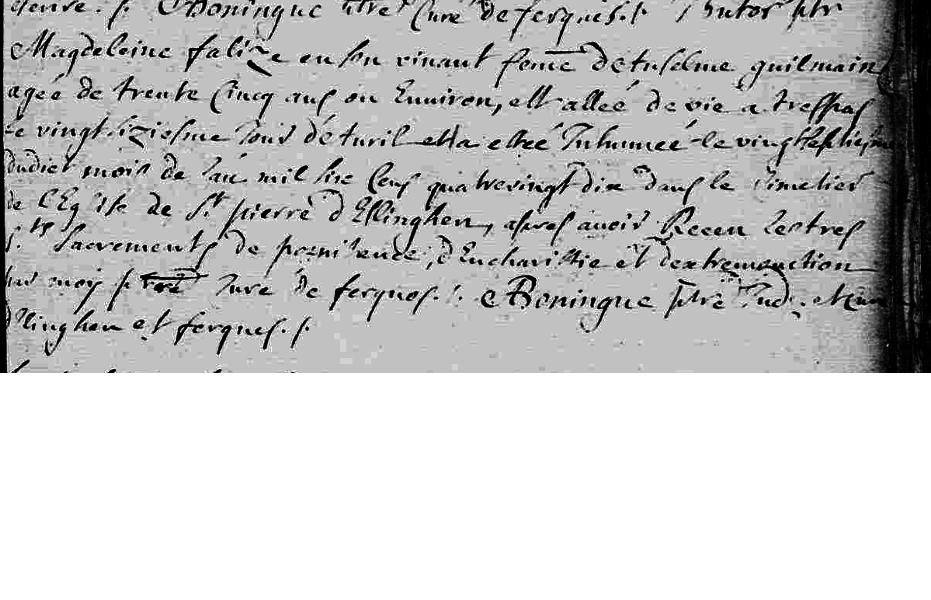 Boningue ptre Curé de ferques.
Magdeleine falize en son vivant feme guilmain
agée de trente Cincq ans ou Environ, est alleé de vie a trespas
Le vingt siziesme jour et a esteé Inhumeé le vingtseptiesme
dudict mois de lan mil sixe Cens quatrevingt dix dans le Cimetier
de l'Eglise de St pierre d'Ellinghen, apres avoir Receu les tres
Sts Sacrements de poenitence, d'Eucharistie et d'extremonction
par moy Curé de ferques. C Boningue ptre
d'Ellinghen et ferques.